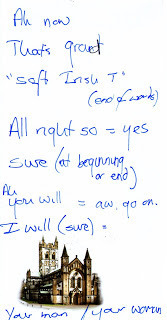 Ah now
That's great
"Soft Irish T"
(end of words)
All right so = yes
Sure (at beginning
or end)
Ah
you will = aw, go on.
I will (sure) =
Your man / your woman